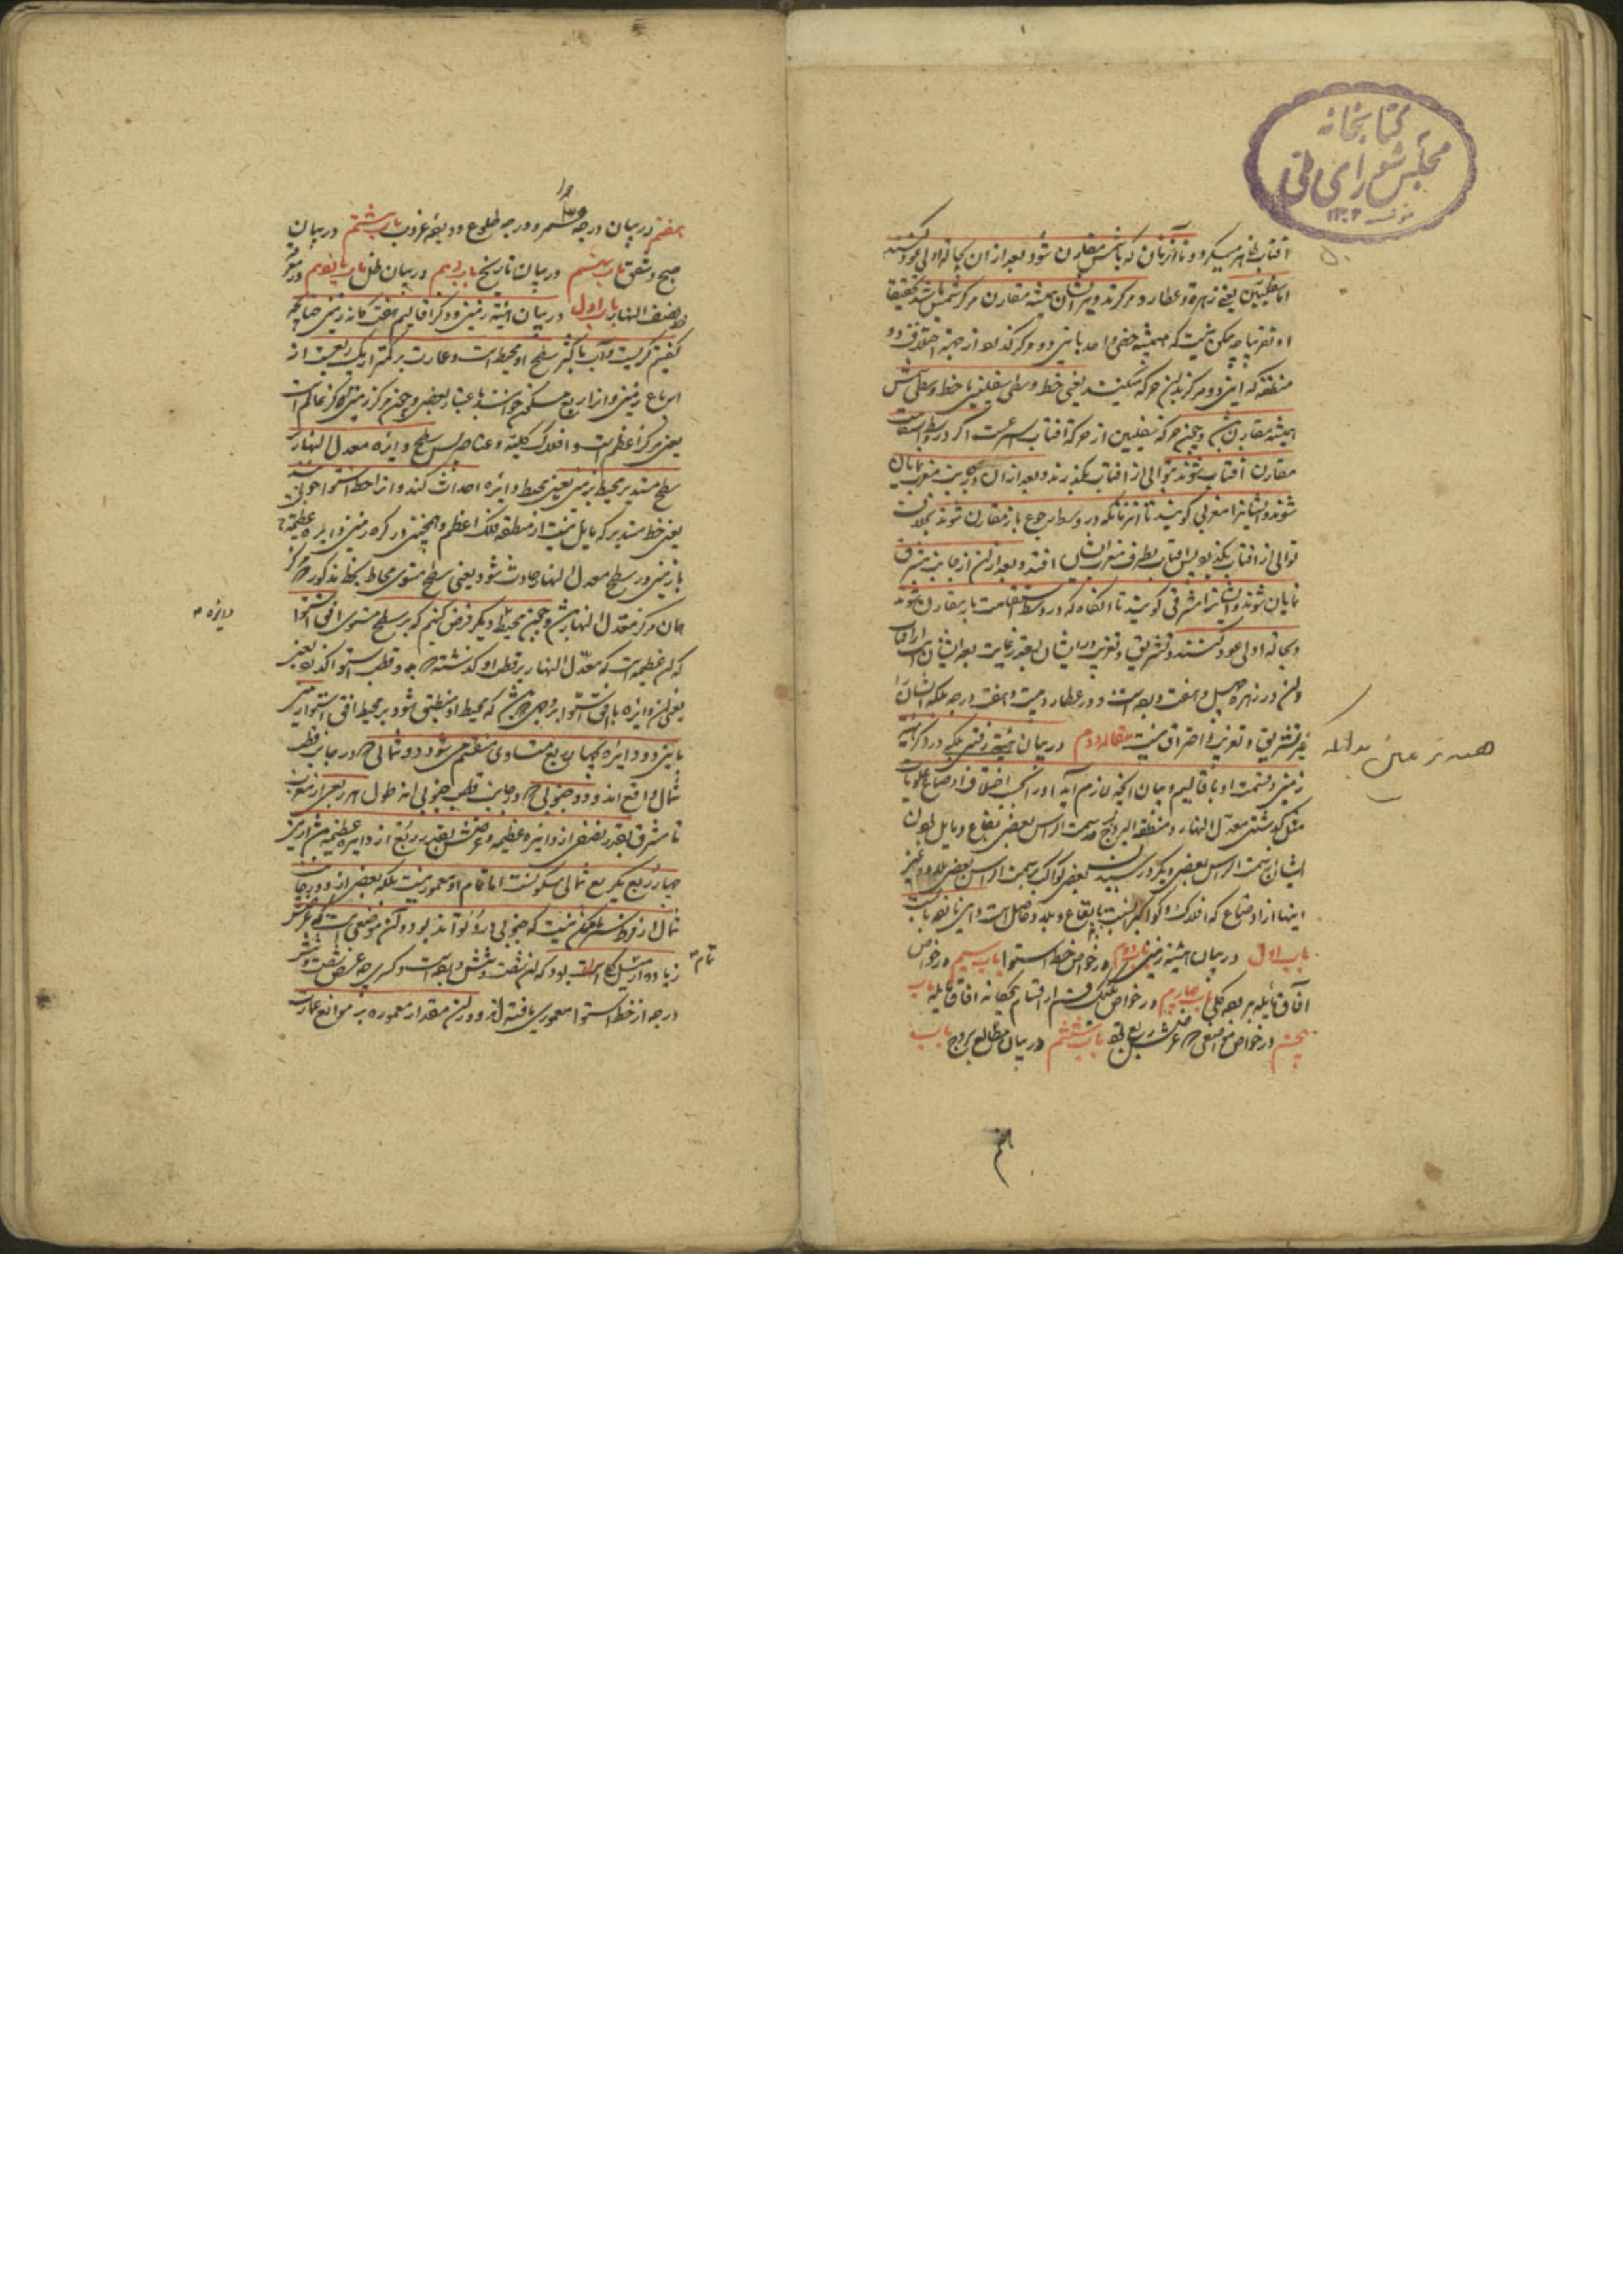 کتابخانه
مجلس شورای ملی
۱۳۰۲
آفتاب ظاهر میگردد تا آنزمان که با شمس مقارن شود بعد از ان بحاله اولی عود کنند
اما سفلیین یعنی زهره و عطارد مرکز تدویر ایشان همیشه مقارن مرکز شمس باشد تحقیقا
او تقریبا چه ممکن نیست که همیشه خطی واحد باین دو مرکز گذرد از جهة اختلاف دو
منطقه که این دو مرکز بدان حرکه میکنند یعنی خط وسطی سفلیین با خط وسطی شمس
همیشه مقارن باشن و چون حرکه سفلیین از حرکة آفتاب اسرعست اگر در وسط استقامت
مقارن آفتاب شوند بتوالی از آفتاب بگذرند و بعد از ان در جانب مغرب نمایان
شوند و ایشانرا مغربی گویند تا آنزمانکه در وسط رجوع باز مقارن شوند بخلاف
توالی از آفتاب بگذرد پس آفتاب بطرف مغرب ایشان افتد و بعد از ان از جانب مشرق
نمایان شوند و ایشانرا مشرقی گویند تا آنگاه که در وسط استقامت باز مقارن شوند
و بحاله اولی عود کنند و تشریق و تغریب ایشان بقدر غایت بعد ایشان از آفتاب
و ان در زهره چهل و هفت درجه است و در عطارد بیست و هفت درجه بلکه ایشان را
غیر تشریق و تغریب و احتراق نیست مقاله دوم در بیان هیئة زمین بلکه در ذکر هیئة
زمین و قسمت او باقالیم و بیان آنچه لازم آید او را بحسب اختلاف اوضاع علویات
مثل گذشتن معدل النهار و منطقة البروج بر سمت الراس بعضی بقاع و مایل بودن
ایشان از سمت الراس بعضی دیگر و رسیدن بعضی کواکب بسمت الراس بعضی بلاد و غیر
اینها از اوضاع که افلاک و کواکب را نسبت با بقاع و بلاد حاصل است و این یازده بابست
باب اول در بیان هیئة زمین باب دوم در خواص خط استوا باب سیم در خواص
آفاق مایله بر وجه کلی باب چهارم در خواص یک یک قسم از اقسام پنجگانه آفاق مایله باب
پنجم در خواص مواضعی که عرضش ربع بود باب ششم در بیان مطالع بروج باب
هفتم در بیان درجه ممر و درجه طلوع و درجه غروب باب هشتم در بیان
صبح و شفق باب نهم در بیان تاریخ باب دهم در بیان ظل باب یازدهم در معرفة
خط نصف النهار باب اول در بیان هیئة زمین و ذکر اقالیم هفت گانه زمین چنانچه
گفتیم کریست و آب باکثر سطح او محیط است و عمارت بر کمتر از یک ربعست از
ارباع زمین و انرا ربع مسکون خوانند باعتبار بعضی و چون مرکز زمین که مرکز عالم است
یعنی مرکز اعظم است و افلاک کلیه و عناصر پس سطح دایره معدل النهار
سطح مستدیر محیط زمین یعنی محیط دایره احداث کند و انرا خط استوا خوانند
یعنی خط مستدیر که مایل نیست از منطقه فلک اعظم و همچنین در کره زمین دایره عظیمه
بازمین در سطح معدل النهار حادث شود یعنی سطح مستوی محاط بخط مذکور که مرکز
همان مرکز معدل النهار باشن و چون محیط دیگر فرض کنیم که بر سطح مستوی افق استوا
که ان عظیمه است که معدل النهار بر قطب او گذشته و بر دو قطب استوا گذرد یعنی
دایره
یعنی ان دایره با افق استوا بر وجهی باشد که محیط او منطبق شود بر محیط افق استوا زمین
باین دو دایره بچهار ربع متساوی منقسم می شود دو شمالی که در جانب قطب
شمال واقع اند و دو جنوبی که در جانب قطب جنوبی اند طول هر ربعی از مغرب
تا مشرق بقدر نصف از دایره عظیمه و عرضش بقدر ربع از دایره عظیمه باشد ازین
چهار ربع یکربع شمالی مسکونست اما تمام او معمور نیست بلکه بعضی از و در جانب
شمال از فرط سرما ممکن نیست که حیوانی در و تواند بود و آن موضعیست که عرضش
زیاده از تمام میل کلی بود که ان شصت و شش درجه است و کسری چه عرض شصت و شش
تمام
درجه از خط استوا معموری یافته اند و در ان مقدار معموره نیز موانع عمارت